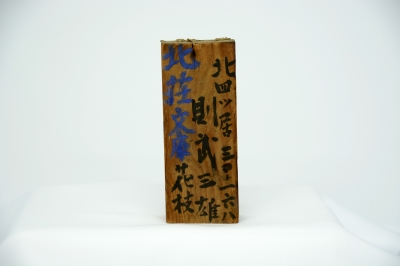 北四ツ居三ー一六八
則武三雄
花枝
北荘文庫